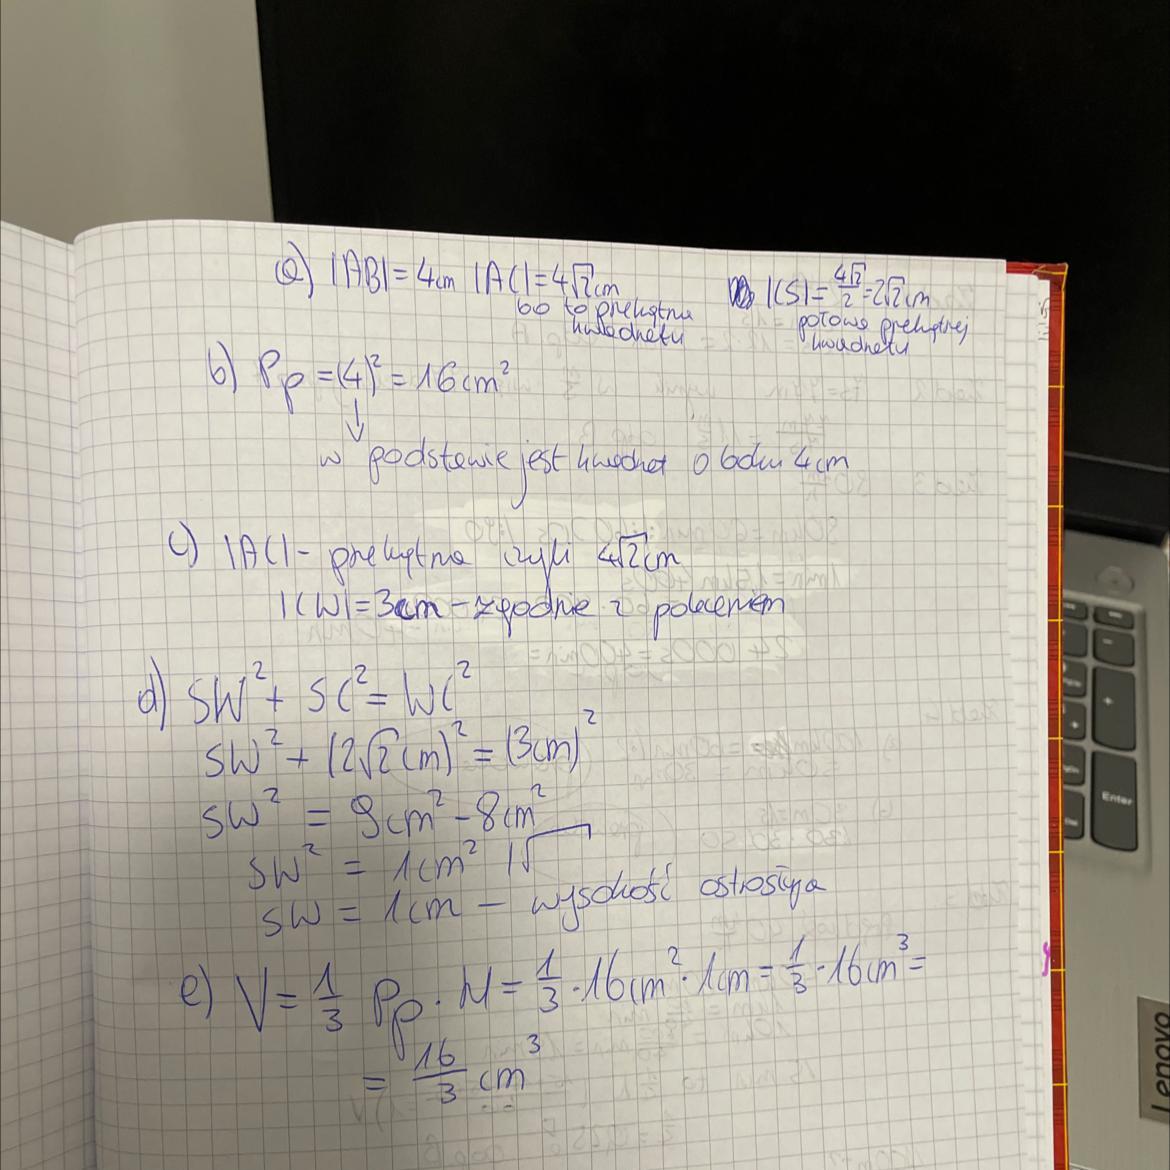 a) |AB| = 4cm |AC| = 4√2cm |CS| = 4√2/2 = 2√2cm
bo to przekątna
kwadratu
połowa przekątnej
kwadratu
b) Pp = (4)² = 16cm²
↓
w podstawie jest kwadrat o boku 4cm
c) |AC| - przekątna czyli 4√2cm
|CW| = 3cm - zgodnie z poleceniem
d) SW² + SC² = WC²
SW² + (2√2cm)² = (3cm)²
SW² = 9cm² - 8cm²
SW² = 1cm² |√
SW = 1cm - wysokość ostrosłupa
e) V = 1/3 Pp · H = 1/3 · 16cm² · 1cm = 1/3 · 16cm³ =
= 16/3 cm³
Enter
Lenovo